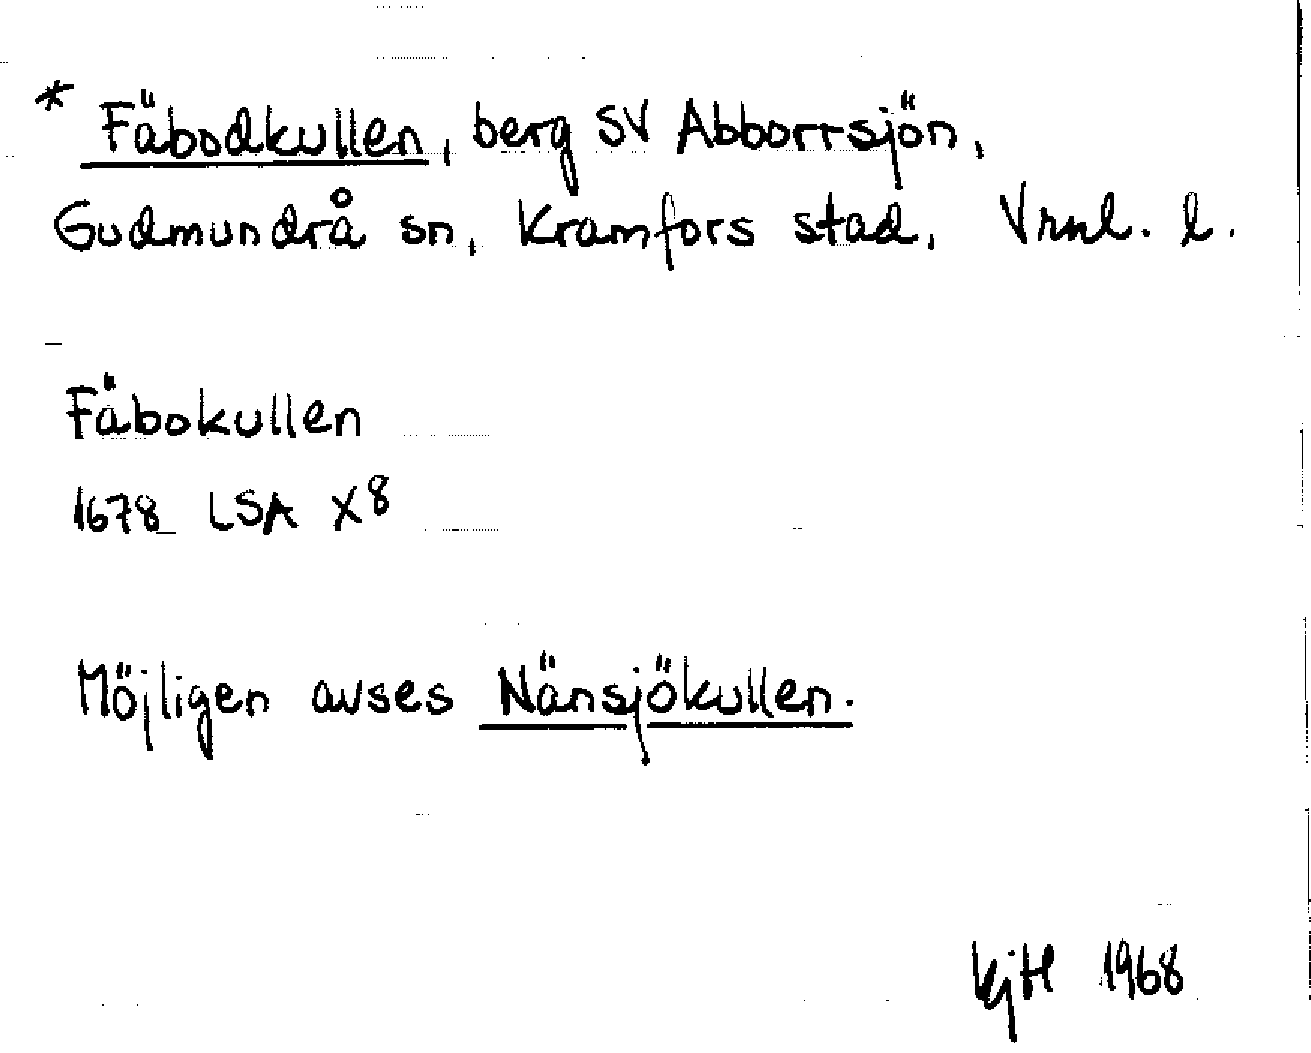 * Fäbodkullen, berg SV Abborrsjön,
Gudmundrå sn, Kramfors stad, Vrnl. l.
Fäbokullen
1678 LSA X8
Möjligen avses Nänsjökullen.
kjH 1968